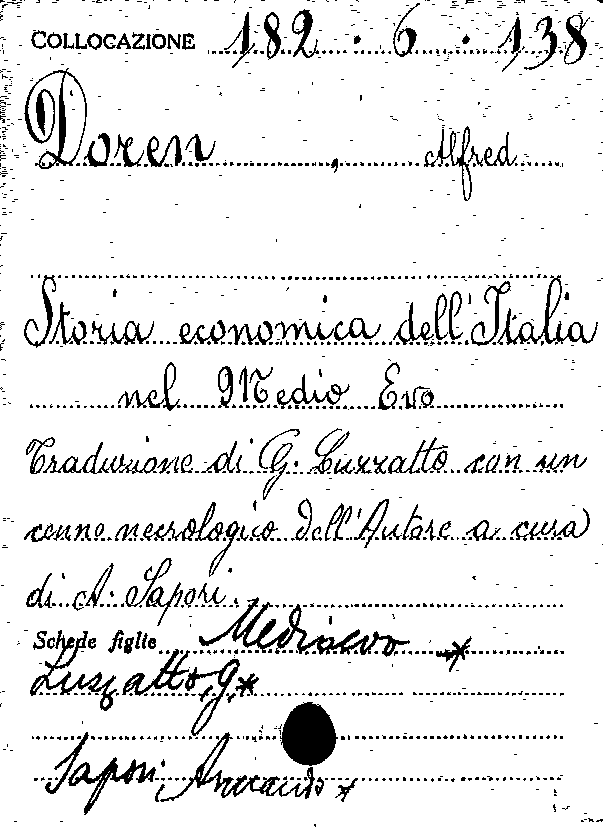 COLLOCAZIONE 182 . 6 . 138
Doren, Alfred
Storia economica dell'Italia
nel Medio Evo
Traduzione di G. Luzzatto con un
cenno necrologico dell'Autore a cura
di A. Sapori.
Schede figlie Medioevo *
Luzzatto, G. *
Sapori, Armando *